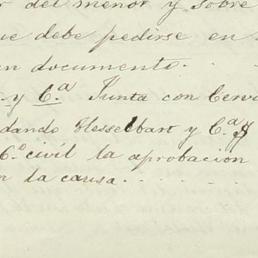 del menor y sobre
que debe pedirse en
documento. .
y C.ª Junta con
dando Glesselbart y C.ª y
C.º civil la aprobacion
en la causa. . . .